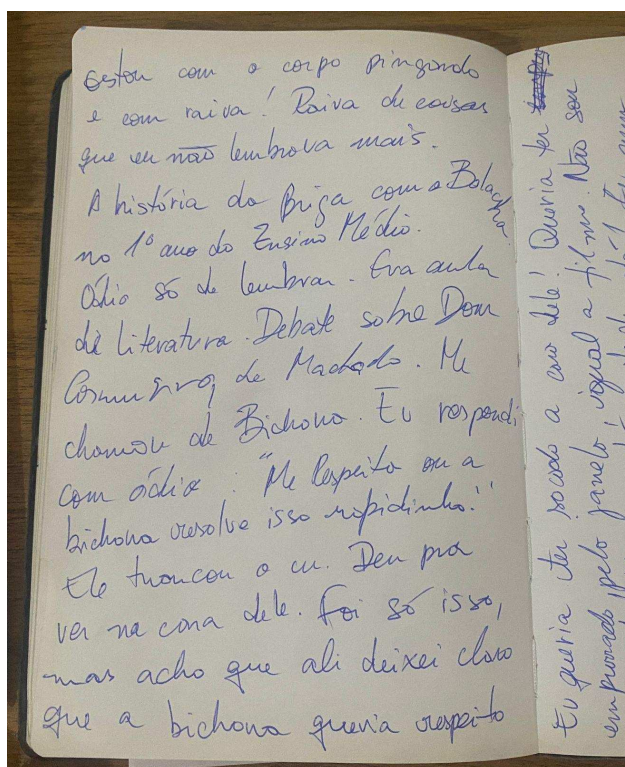 Estou com o corpo pingando
e com raiva! Raiva de coisas
que eu não lembrava mais.
A história da Briga com o Bolacha
no 1º ano do Ensino Médio.
Ódio só de lembrar. Era aula
de Literatura. Debate sobre Dom
Casmurro, de Machado. Me
chamou de Bichona. Eu respondi
com ódio: "Me Respeita ou a
bichona resolve isso rapidinho."
Ele trancou o cu. Deu pra
ver na cara dele. Foi só isso,
mas acho que ali deixei claro
que a bichona queria respeito
Eu queria ter socado a cara dele! Queria ter
empurrado pela janela, igual a filme. Não sou